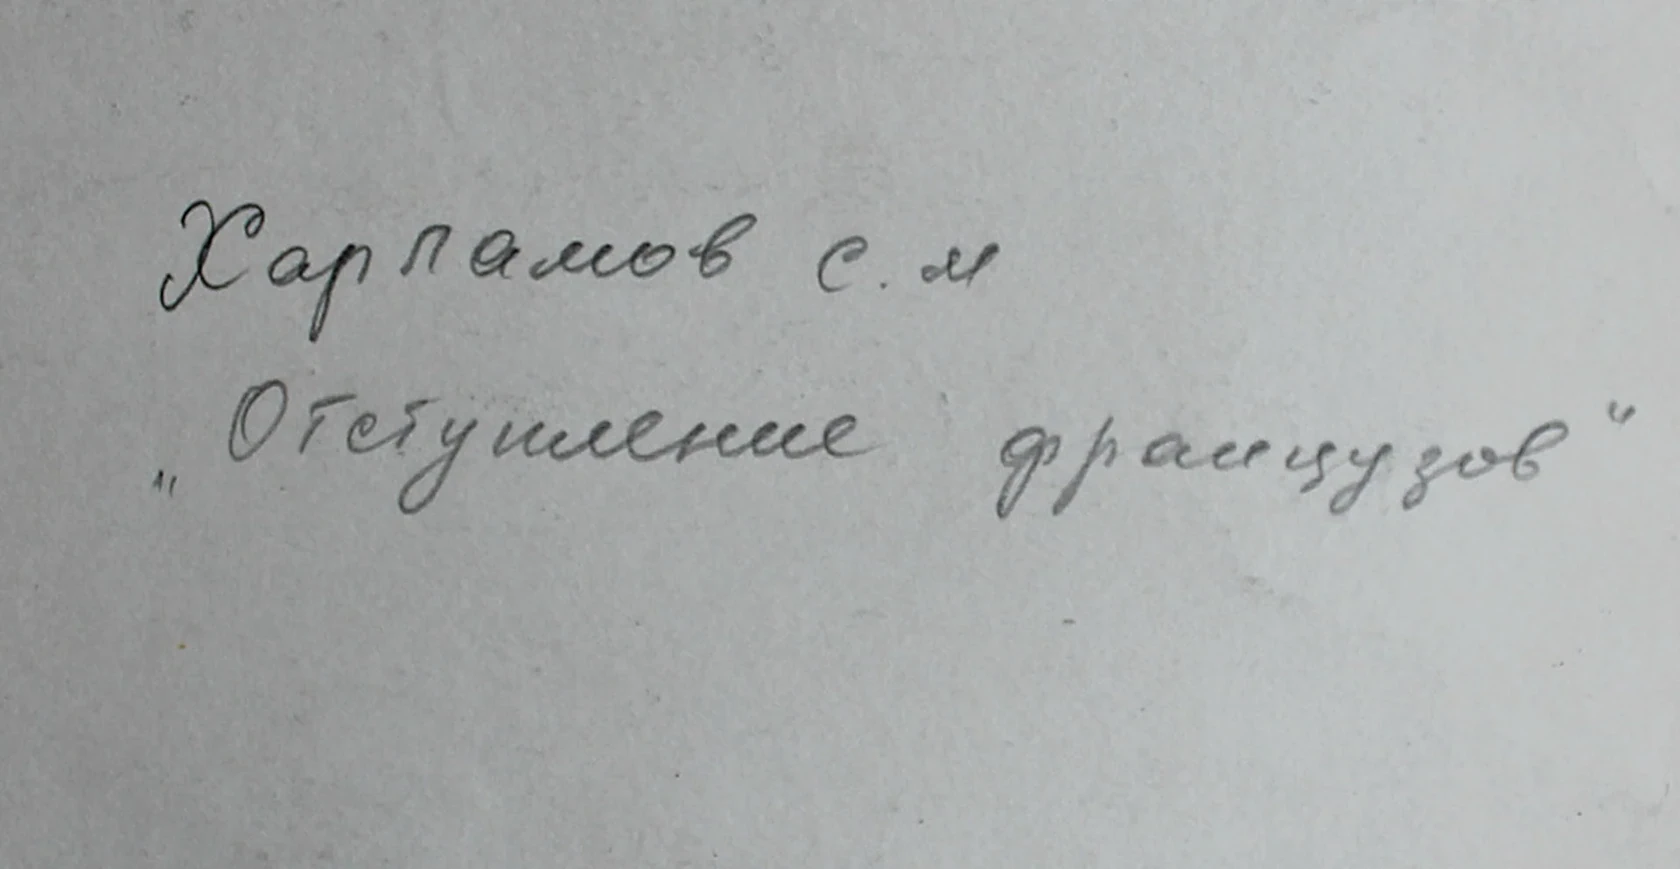 Харламов С.М
„Отступление французов“